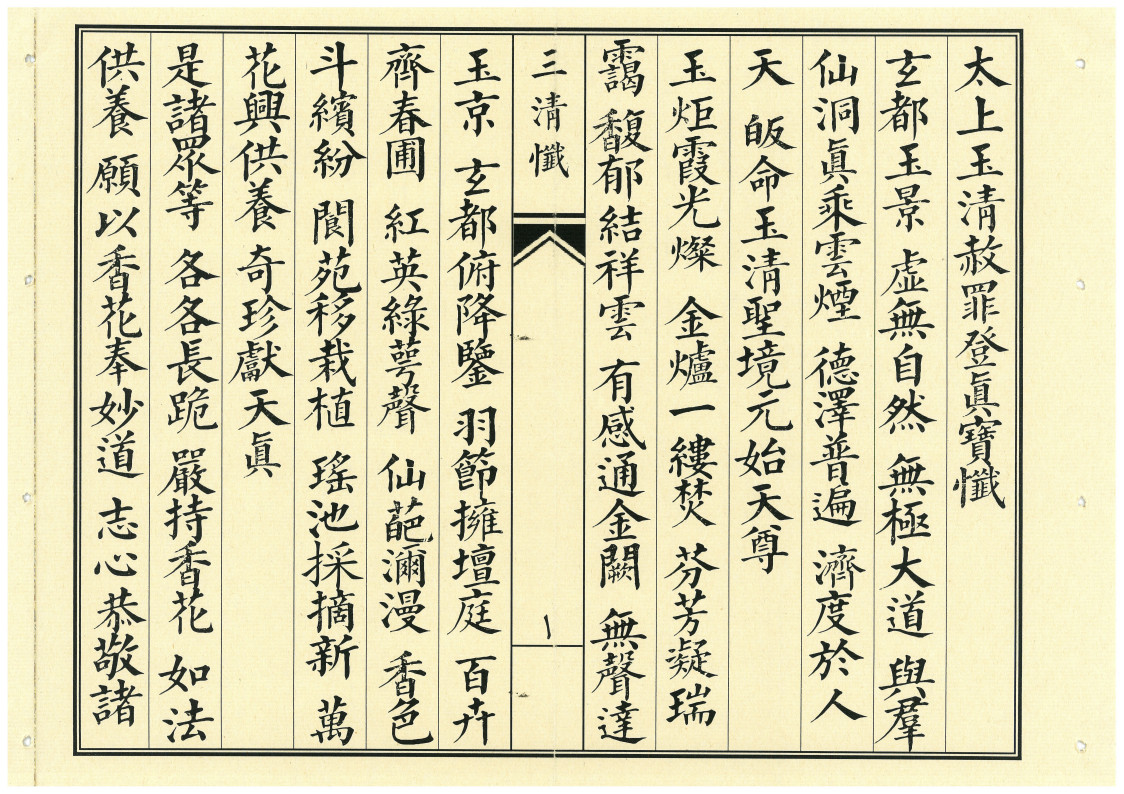 太上玉清赦罪登眞寶懺
玄都玉景 虛無自然 無極大道 與羣
仙洞眞乘雲煙 德澤普遍 濟度於人
天 皈命玉清聖境元始天尊
玉炬霞光燦 金爐一縷焚 芬芳凝瑞
靄 馥郁結祥雲 有感通金闕 無聲達
三清懺
一
玉京 玄都俯降鑒 羽節擁壇庭 百卉
齊春圃 紅英綠萼馨 仙葩瀰漫 香色
斗繽紛 閬苑移栽植 瑤池採摘新 萬
花興供養 奇珍獻天眞
是諸眾等 各各長跪 嚴持香花 如法
供養 願以香花奉妙道 志心恭敬諸